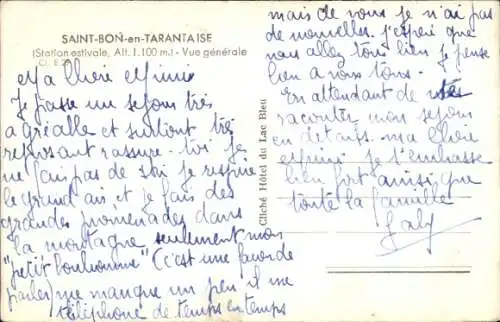 SAINT-BON-en-TARANTAISE
(Station estivale, Alt. 1.100 m.) - Vue générale
Ma chère Mimie
Je passe un séjour très
agréable et surtout très
reposant rassure-toi je
ne fais pas de ski je respire
le grand air et je fais des
grandes promenades dans
la montagne seulement mon
"petit bonhomme" (c'est une façon de
parler) me manque un peu il me
téléphone de temps en temps
Cliché Hôtel du Lac Bleu
mais de vous je n'ai pas
de nouvelles j'espère que
vous allez tous bien je pense
bien à vous tous.
En attendant de vous
raconter mon séjour
en détails. ma chère
je t'embrasse
bien fort ainsi que
toute la famille